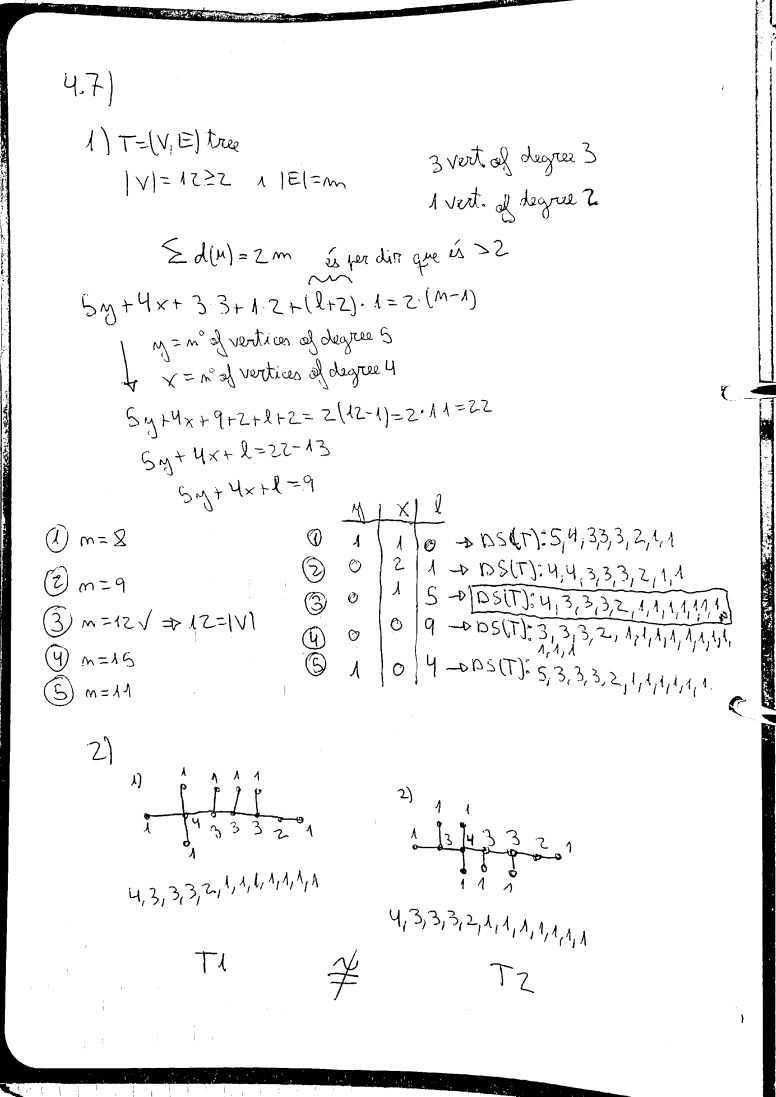 4.7)
1) T=(V,E) tree
|V|=12≥2 i |E|=m
3 vert. of degree 3
1 vert. of degree 2
∑ d(u) = 2m és per dir que és >2
5y+4x+3·3+1·2+(l+2)·1=2·(n-1)
y = nº of vertices of degree 5
x = nº of vertices of degree 4
5y+4x+9+2+l+2=2(12-1)=2·11=22
5y+4x+l=22-13
5y+4x+l=9
y x l
① n=8
① 1 1 0 → DS(T): 5,4,3,3,3,2,1,1
② n=9
② 0 2 1 → DS(T): 4,4,3,3,3,2,1,1
③ n=12 ✓ ⇒ 12=|V|
③ 0 1 5 → DS(T): 4,3,3,3,2,1,1,1,1,1,1,1
④ n=15
④ 0 0 9 → DS(T): 3,3,3,2,1,1,1,1,1,1,1,1,
1,1,1
⑤ n=11
⑤ 1 0 4 → DS(T): 5,3,3,3,2,1,1,1,1,1,1.
2)
1)
1 1 1 1
1 4 3 3 3 2 1
1
4,3,3,3,2,1,1,1,1,1,1,1
2)
1 1
1 3 4 3 3 2 1
1 1 1
4,3,3,3,2,1,1,1,1,1,1,1
T1 ≇ T2